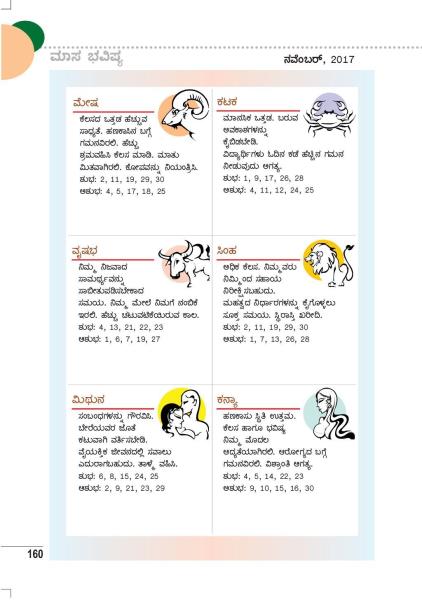 ಮಾಸ ಭವಿಷ್ಯ
ನವೆಂಬರ್, 2017
ಮೇಷ
ಕೆಲಸದ ಒತ್ತಡ ಹೆಚ್ಚುವ
ಸಾಧ್ಯತೆ. ಹಣಕಾಸಿನ ಬಗ್ಗೆ
ಗಮನವಿರಲಿ. ಹೆಚ್ಚು
ಶ್ರಮವಹಿಸಿ ಕೆಲಸ ಮಾಡಿ. ಮಾತು
ಮಿತವಾಗಿರಲಿ. ಕೋಪವನ್ನು ನಿಯಂತ್ರಿಸಿ.
ಶುಭ: 2, 11, 19, 29, 30
ಅಶುಭ: 4, 5, 17, 18, 25
ಕಟಕ
ಮಾನಸಿಕ ಒತ್ತಡ. ಬರುವ
ಅವಕಾಶಗಳನ್ನು
ಕೈಬಿಡಬೇಡಿ.
ವಿದ್ಯಾರ್ಥಿಗಳು ಓದಿನ ಕಡೆ ಹೆಚ್ಚಿನ ಗಮನ
ನೀಡುವುದು ಅಗತ್ಯ.
ಶುಭ: 1, 9, 17, 26, 28
ಅಶುಭ: 4, 11, 12, 24, 25
ವೃಷಭ
ನಿಮ್ಮ ನಿಜವಾದ
ಸಾಮರ್ಥ್ಯವನ್ನು
ಸಾಬೀತುಪಡಿಸಬೇಕಾದ
ಸಮಯ. ನಿಮ್ಮ ಮೇಲೆ ನಿಮಗೆ ನಂಬಿಕೆ
ಇರಲಿ. ಹೆಚ್ಚು ಚಟುವಟಿಕೆಯಿರುವ ಕಾಲ.
ಶುಭ: 4, 13, 21, 22, 23
ಅಶುಭ: 1, 6, 7, 19, 27
ಸಿಂಹ
ಅಧಿಕ ಕೆಲಸ. ನಿಮ್ಮವರು
ನಿಮ್ಮಿಂದ ಸಹಾಯ
ನಿರೀಕ್ಷಿಸಬಹುದು.
ಮಹತ್ವದ ನಿರ್ಧಾರಗಳನ್ನು ಕೈಗೊಳ್ಳಲು
ಸೂಕ್ತ ಸಮಯ. ಸ್ಥಿರಾಸ್ತಿ ಖರೀದಿ.
ಶುಭ: 2, 11, 19, 29, 30
ಅಶುಭ: 1, 7, 13, 26, 28
ಮಿಥುನ
ಸಂಬಂಧಗಳನ್ನು ಗೌರವಿಸಿ.
ಬೇರೆಯವರ ಜೊತೆ
ಕಟುವಾಗಿ ವರ್ತಿಸಬೇಡಿ.
ವೈಯಕ್ತಿಕ ಜೀವನದಲ್ಲಿ ಸವಾಲು
ಎದುರಾಗಬಹುದು. ತಾಳ್ಮೆ ವಹಿಸಿ.
ಶುಭ: 6, 8, 15, 24, 25
ಅಶುಭ: 2, 9, 21, 23, 29
ಕನ್ಯಾ
ಹಣಕಾಸು ಸ್ಥಿತಿ ಉತ್ತಮ.
ಕೆಲಸ ಹಾಗೂ ಭವಿಷ್ಯ
ನಿಮ್ಮ ಮೊದಲ
ಆದ್ಯತೆಯಾಗಿರಲಿ. ಆರೋಗ್ಯದ ಬಗ್ಗೆ
ಗಮನವಿರಲಿ. ವಿಶ್ರಾಂತಿ ಅಗತ್ಯ.
ಶುಭ: 4, 5, 14, 22, 23
ಅಶುಭ: 9, 10, 15, 16, 30
160